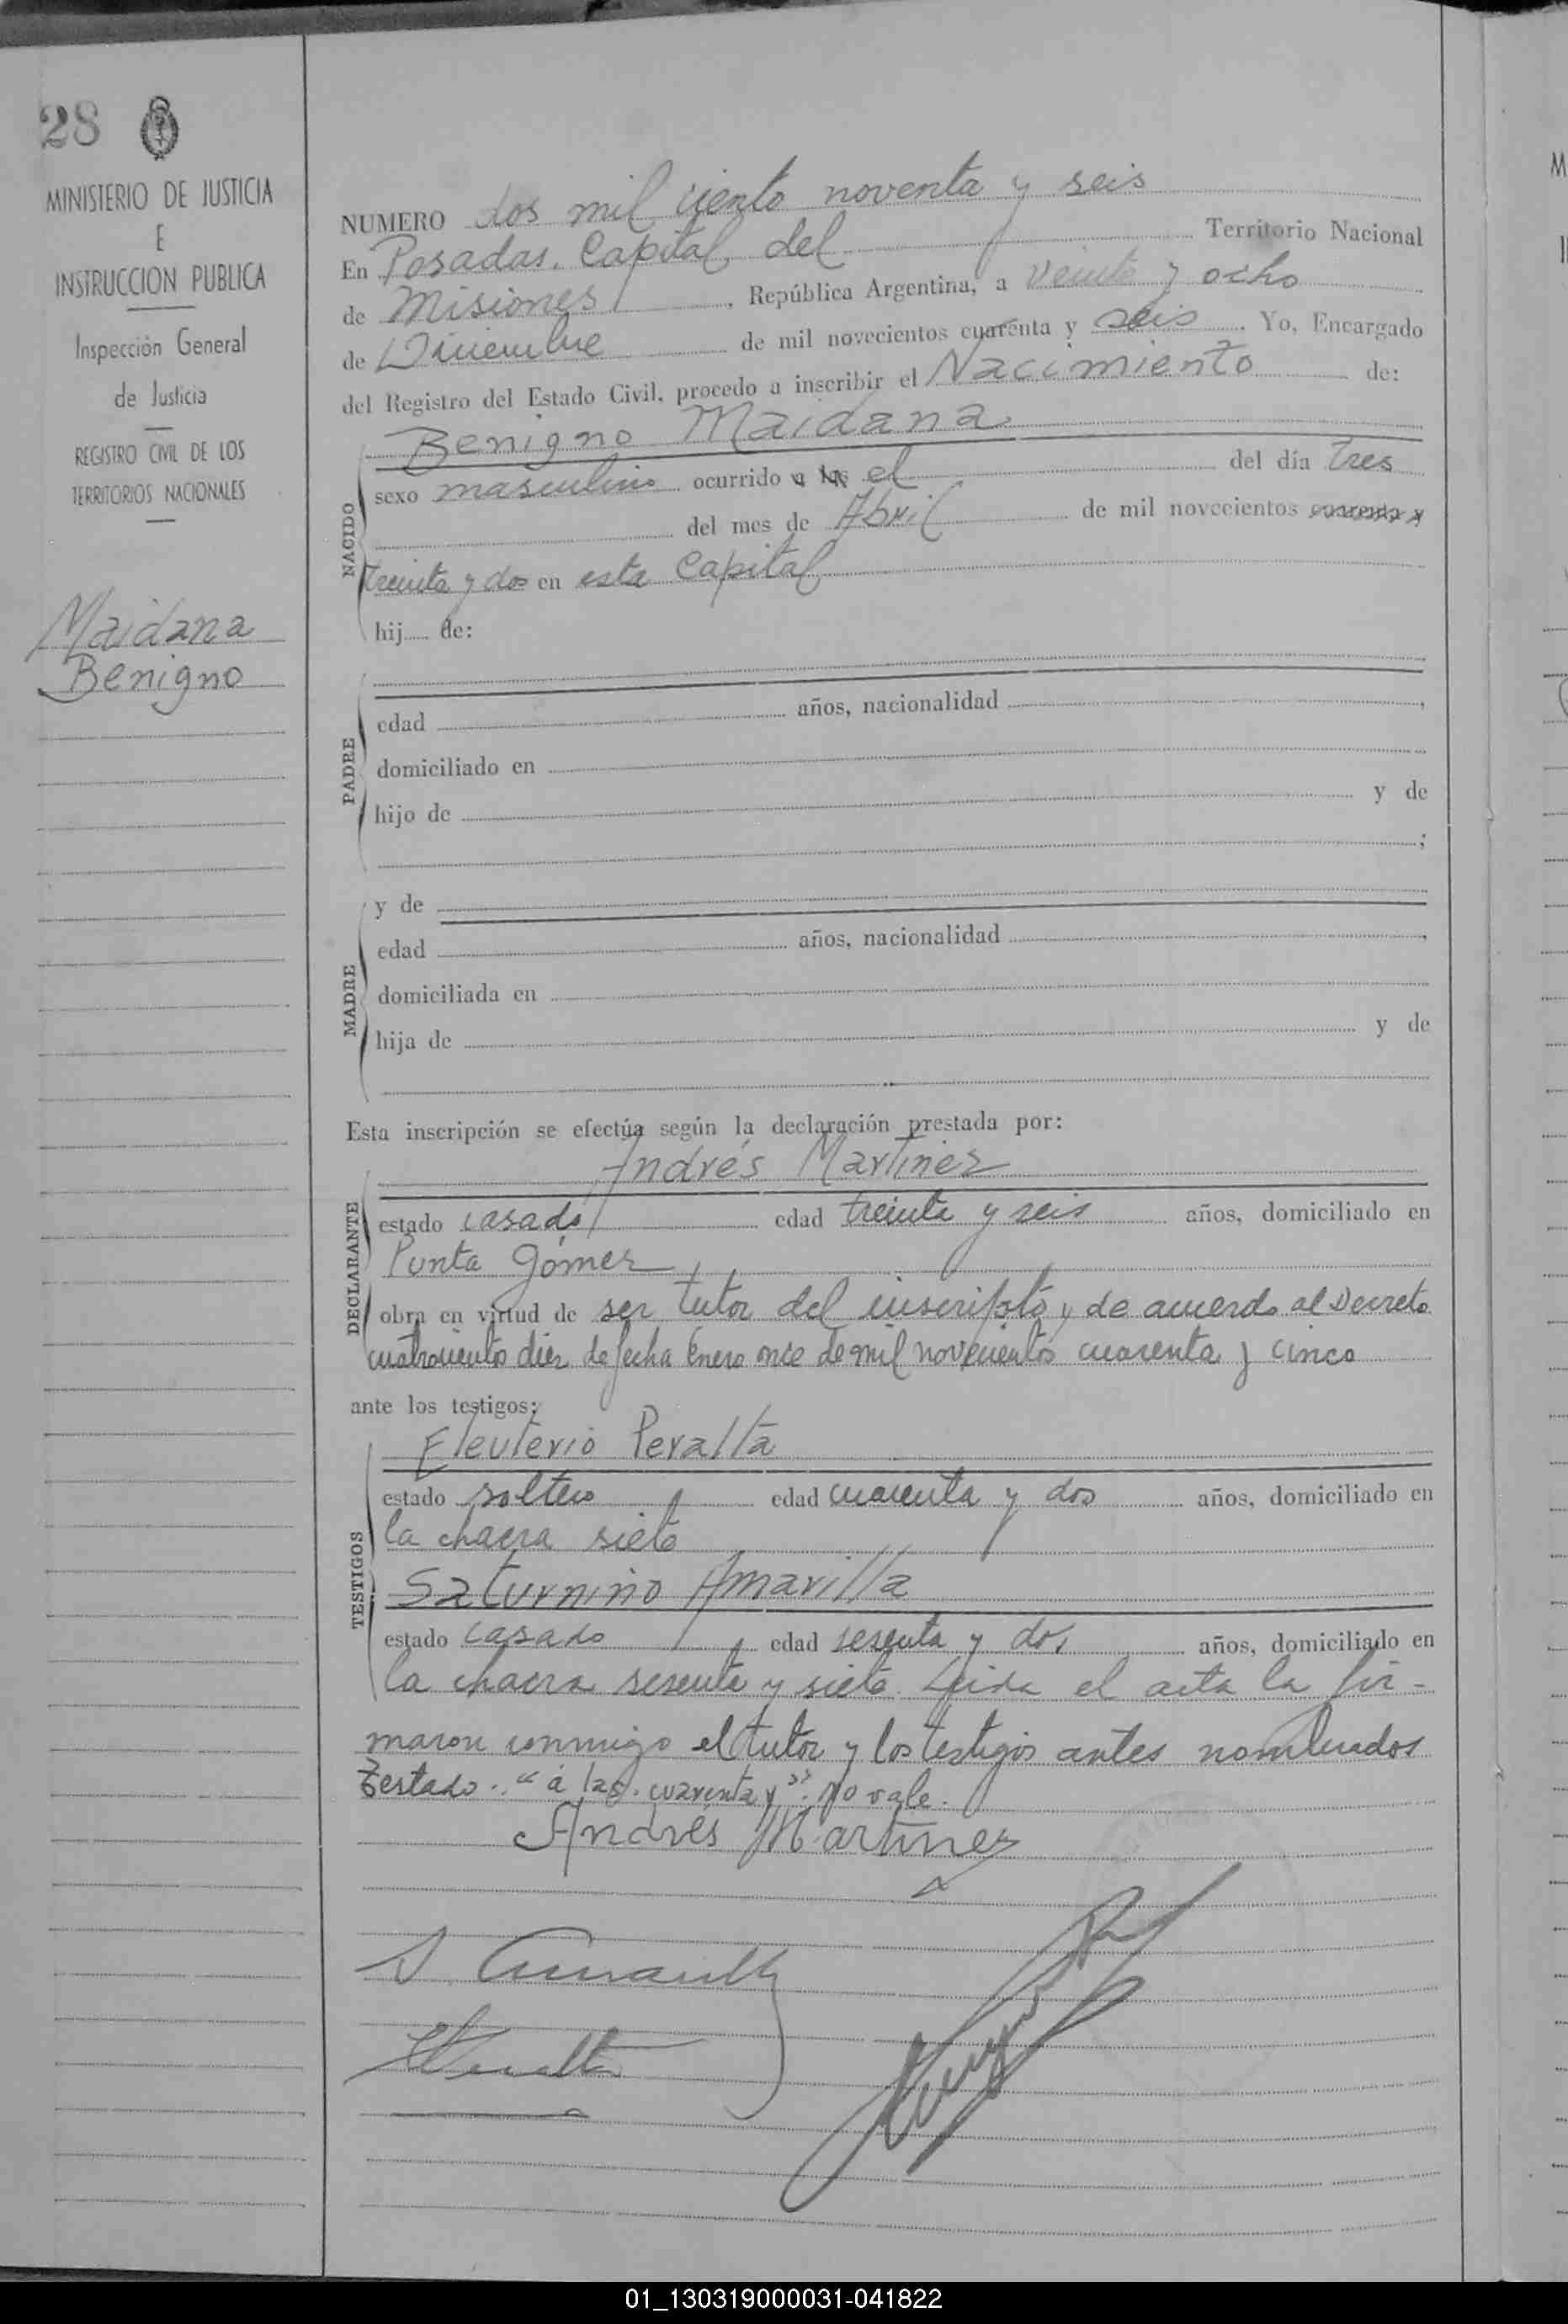 28
MINISTERIO DE JUSTICIA
E
INSTRUCCION PUBLICA
Inspección General
de Justicia
REGISTRO CIVIL DE LOS
TERRITORIOS NACIONALES
Maidana
Benigno
NUMERO dos mil ciento noventa y seis
En Posadas, Capital del Territorio Nacional
de Misiones, República Argentina, a veinte y ocho
de Diciembre de mil novecientos cuarenta y seis. Yo, Encargado
del Registro del Estado Civil, procedo a inscribir el Nacimiento de:
NACIDO
Benigno Maidana
sexo masculino ocurrido a las el del día tres
del mes de Abril de mil novecientos cuarenta y
treinta y dos en esta Capital
hij..... de:
PADRE
edad años, nacionalidad ,
domiciliado en
hijo de y de
;
MADRE
y de
edad años, nacionalidad ,
domiciliada en
hija de y de
Esta inscripción se efectúa según la declaración prestada por:
DECLARANTE
Andrés Martinez
estado casado edad treinta y seis años, domiciliado en
Punta Gómez
obra en virtud de ser tutor del inscripto y de acuerdo al Decreto
cuatrociento diez de fecha Enero once de mil novecientos cuarenta y cinco
ante los testigos:
TESTIGOS
Eleuterio Peralta
estado soltero edad cuarenta y dos años, domiciliado en
la chacra siete
Saturnino Amarilla
estado casado edad sesenta y dos años, domiciliado en
la chacra sesenta y siete. Leida el acta la fir-
maron conmigo el tutor y los testigos antes nombrados
Testado: "á las. cuarenta y": no vale.
Andrés Martinez
S. Amarilla
EPeralta
01_130319000031-041822